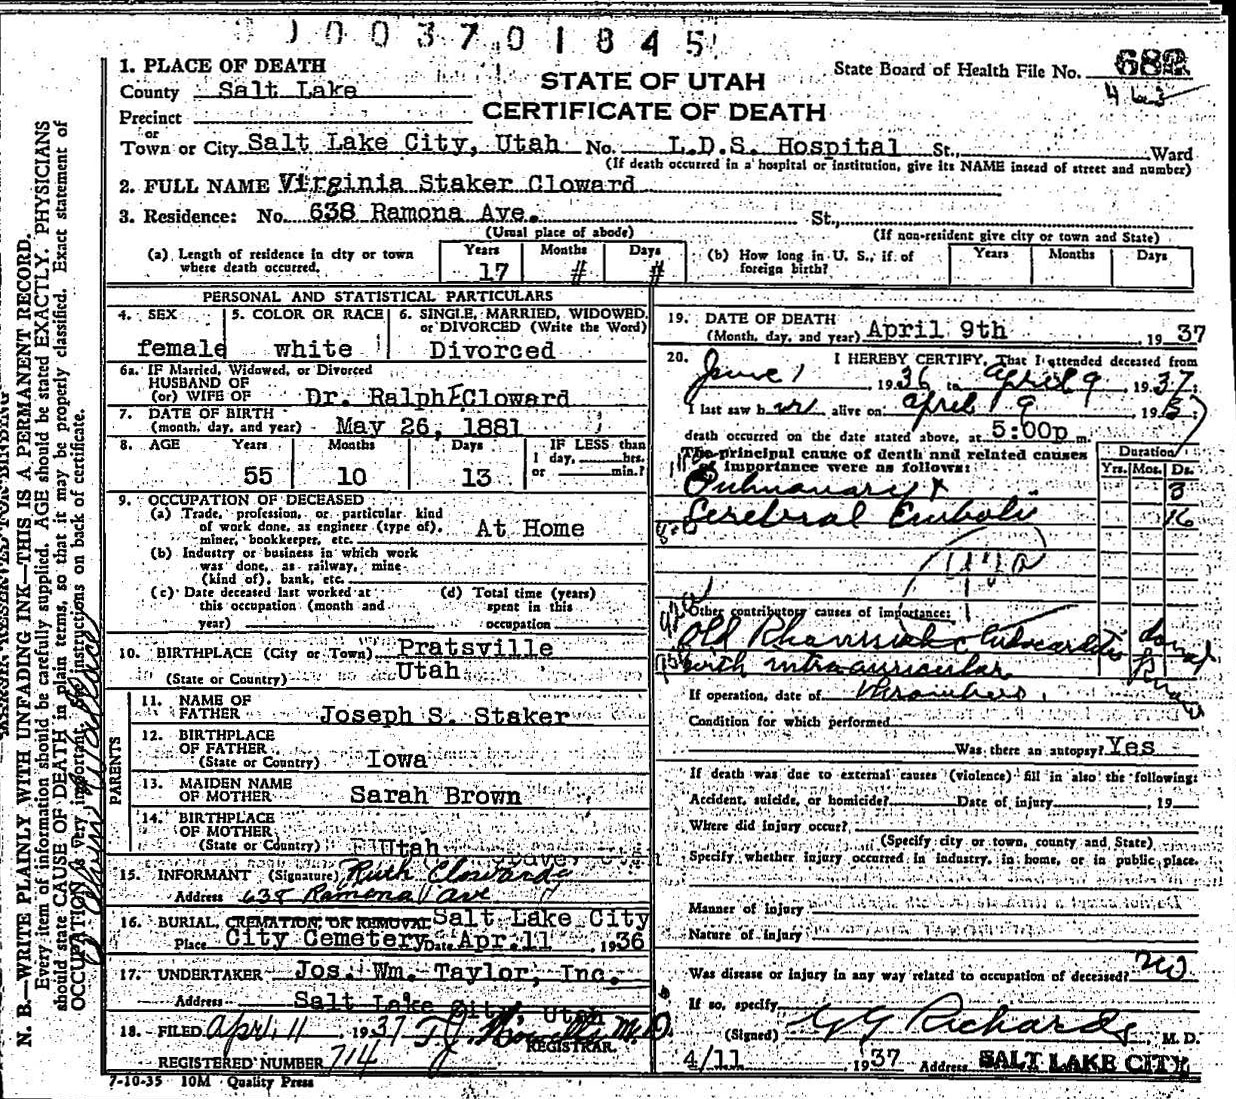 1003701845
1. PLACE OF DEATH
STATE OF UTAH
CERTIFICATE OF DEATH
State Board of Health File No. 682
463
County Salt Lake
Precinct
or
Town or City Salt Lake City, Utah No. L.D.S. Hospital St., Ward
(If death occurred in a hospital or institution, give its NAME insead of street and number)
2. FULL NAME Virginia Staker Cloward
3. Residence: No. 638 Ramona Ave. St.,
(Usual place of abode)
(If non-resident give city or town and State)
(a) Length of residence in city or town where death occurred. Years 17 Months # Days #
(b) How long in U. S., if of foreign birth? Years Months Days
PERSONAL AND STATISTICAL PARTICULARS
4. SEX female
5. COLOR OR RACE white
6. SINGLE, MARRIED, WIDOWED, or DIVORCED (Write the Word) Divorced
6a. IF Married, Widowed, or Divorced
HUSBAND OF
(or) WIFE OF Dr. Ralph E Cloward
7. DATE OF BIRTH
(month, day, and year) May 26, 1881
8. AGE Years 55 Months 10 Days 13
IF LESS than
1 day, hrs.
or min.?
9. OCCUPATION OF DECEASED
(a) Trade, profession, or particular kind
of work done, as engineer (type of), At Home
miner, bookkeeper, etc.
(b) Industry or business in which work
was done, as railway, mine
(kind of), bank, etc.
(c) Date deceased last worked at
this occupation (month and
year)
(d) Total time (years)
spent in this
occupation
10. BIRTHPLACE (City or Town) Pratsville
(State or Country) Utah
PARENTS
11. NAME OF
FATHER Joseph S. Staker
12. BIRTHPLACE
OF FATHER
(State or Country) Iowa
13. MAIDEN NAME
OF MOTHER Sarah Brown
14. BIRTHPLACE
OF MOTHER
(State or Country) Utah
15. INFORMANT (Signature) Ruth Cloward
Address 638 Ramona Ave
16. BURIAL, CREMATION, OR REMOVAL Salt Lake City
Place City Cemetery Date Apr. 11, 1936
17. UNDERTAKER Jos. Wm. Taylor, Inc.
Address Salt Lake City, Utah
18. FILED April 11 1937 M.D.
REGISTRAR.
REGISTERED NUMBER 714
7-10-35 10M Quality Press
19. DATE OF DEATH
(Month, day, and year) April 9th, 1937
20. I HEREBY CERTIFY, That I attended deceased from
June 1, 1936 to April 9, 1937;
I last saw her alive on April 9, 1937
death occurred on the date stated above, at 5:00p m.
The principal cause of death and related causes
of importance were as follows:
Duration
Yrs. Mos. Ds.
Pulmonary & 3
Cerebral Emboli 16
Other contributory causes of importance:
Old Rheumatic Endocarditis
with intraauricular
If operation, date of thrombus.
Condition for which performed
Was there an autopsy? Yes
If death was due to external causes (violence) fill in also the following:
Accident, suicide, or homicide? Date of injury , 19
Where did injury occur?
(Specify city or town, county and State)
Specify whether injury occurred in industry, in home, or in public place.
Manner of injury
Nature of injury
Was disease or injury in any way related to occupation of deceased? No
If so, specify
(Signed) G G Richards, M. D.
4/11, 1937 Address SALT LAKE CITY
MARGIN RESERVED FOR BINDING
N. B.—WRITE PLAINLY WITH UNFADING INK—THIS IS A PERMANENT RECORD.
Every item of information should be carefully supplied. AGE should be stated EXACTLY. PHYSICIANS
should state CAUSE OF DEATH in plain terms, so that it may be properly classified. Exact statement of
OCCUPATION is very important. See instructions on back of certificate.